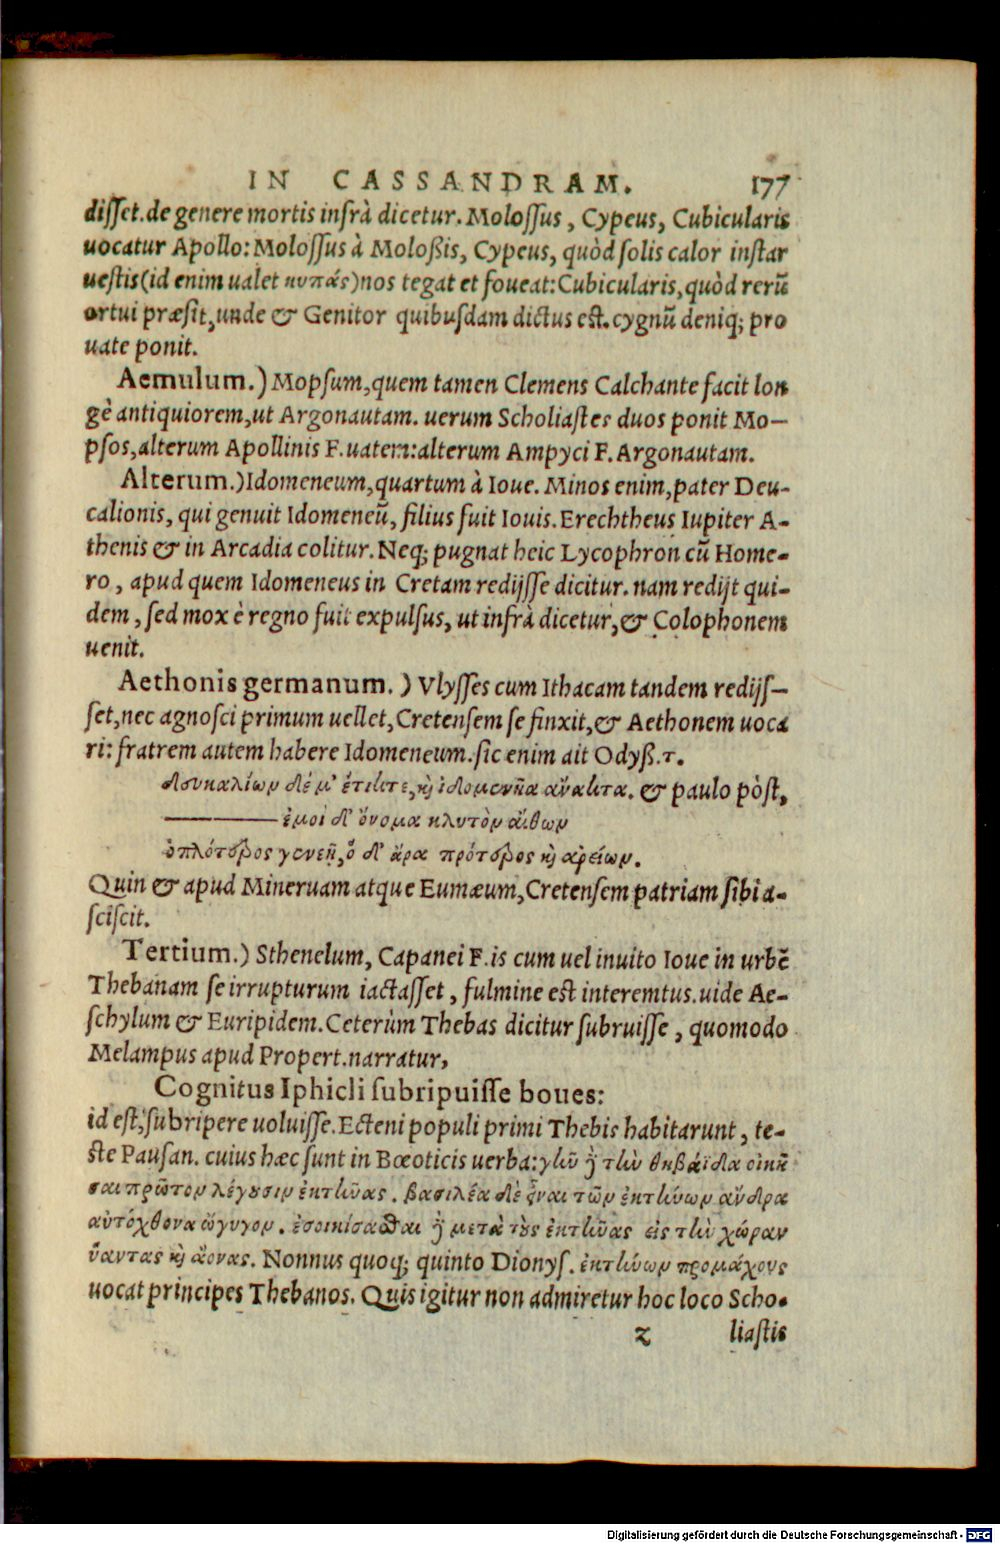 IN CASSANDRAM. 177
disset. de genere mortis infrà dicetur. Molossus, Cypeus, Cubicularis
uocatur Apollo: Molossus à Moloßis, Cypeus, quòd solis calor instar
uestis (id enim ualet κυπάς) nos tegat et foueat: Cubicularis, quòd rerū
ortui præsit, unde & Genitor quibusdam dictus est. cygnū deniq; pro
uate ponit.
Aemulum.) Mopsum, quem tamen Clemens Calchante facit lon
gè antiquiorem, ut Argonautam. uerum Scholiastes duos ponit Mo-
psos, alterum Apollinis F. uatem: alterum Ampyci F. Argonautam.
Alterum.) Idomeneum, quartum à Ioue. Minos enim, pater Deu-
calionis, qui genuit Idomeneū, filius fuit Iouis. Erechtheus Iupiter A-
thenis & in Arcadia colitur. Neq; pugnat heic Lycophron cū Home-
ro, apud quem Idomeneus in Cretam redijsse dicitur. nam redijt qui-
dem, sed mox è regno fuit expulsus, ut infrà dicetur, & Colophonem
uenit.
Aethonis germanum.) Vlysses cum Ithacam tandem redijs-
set, nec agnosci primum uellet, Cretensem se finxit, & Aethonem uoca
ri: fratrem autem habere Idomeneum. sic enim ait Odyß. τ.
Δευκαλίων δέ μ' ἔτικτε, καὶ ἰδομενῆα ἄνακτα. & paulo pòst,
ἐμοὶ δ' ὄνομα κλυτὸν αἴθων
ὁπλότερος γενεῇ, ὁ δ' ἄρα πρότερος καὶ ἀρείων.
Quin & apud Mineruam atque Eumæum, Cretensem patriam sibi a-
sciscit.
Tertium.) Sthenelum, Capanei F. is cum uel inuito Ioue in urbē
Thebanam se irrupturum iactasset, fulmine est interemtus. uide Ae-
schylum & Euripidem. Ceterùm Thebas dicitur subruisse, quomodo
Melampus apud Propert. narratur,
Cognitus Iphicli subripuisse boues:
id est, subripere uoluisse. Ecteni populi primi Thebis habitarunt, te-
ste Pausan. cuius hæc sunt in Bœoticis uerba: γῆν δὲ τὴν θηβαΐδα οἰκῆ
σαι πρῶτον λέγουσιν ἐκτῆνας. βασιλέα δὲ εἶναι τῶν ἐκτήνων ἄνδρα
αὐτόχθονα ὤγυγον. ἐσοικίσασθαι δὲ μετὰ τοὺς ἐκτῆνας εἰς τὴν χώραν
ὕαντας καὶ ἄονας. Nonnus quoq; quinto Dionys. ἐκτήνων προμάχους
uocat principes Thebanos. Quis igitur non admiretur hoc loco Scho-
z liastis
Digitalisierung gefördert durch die Deutsche Forschungsgemeinschaft - DFG